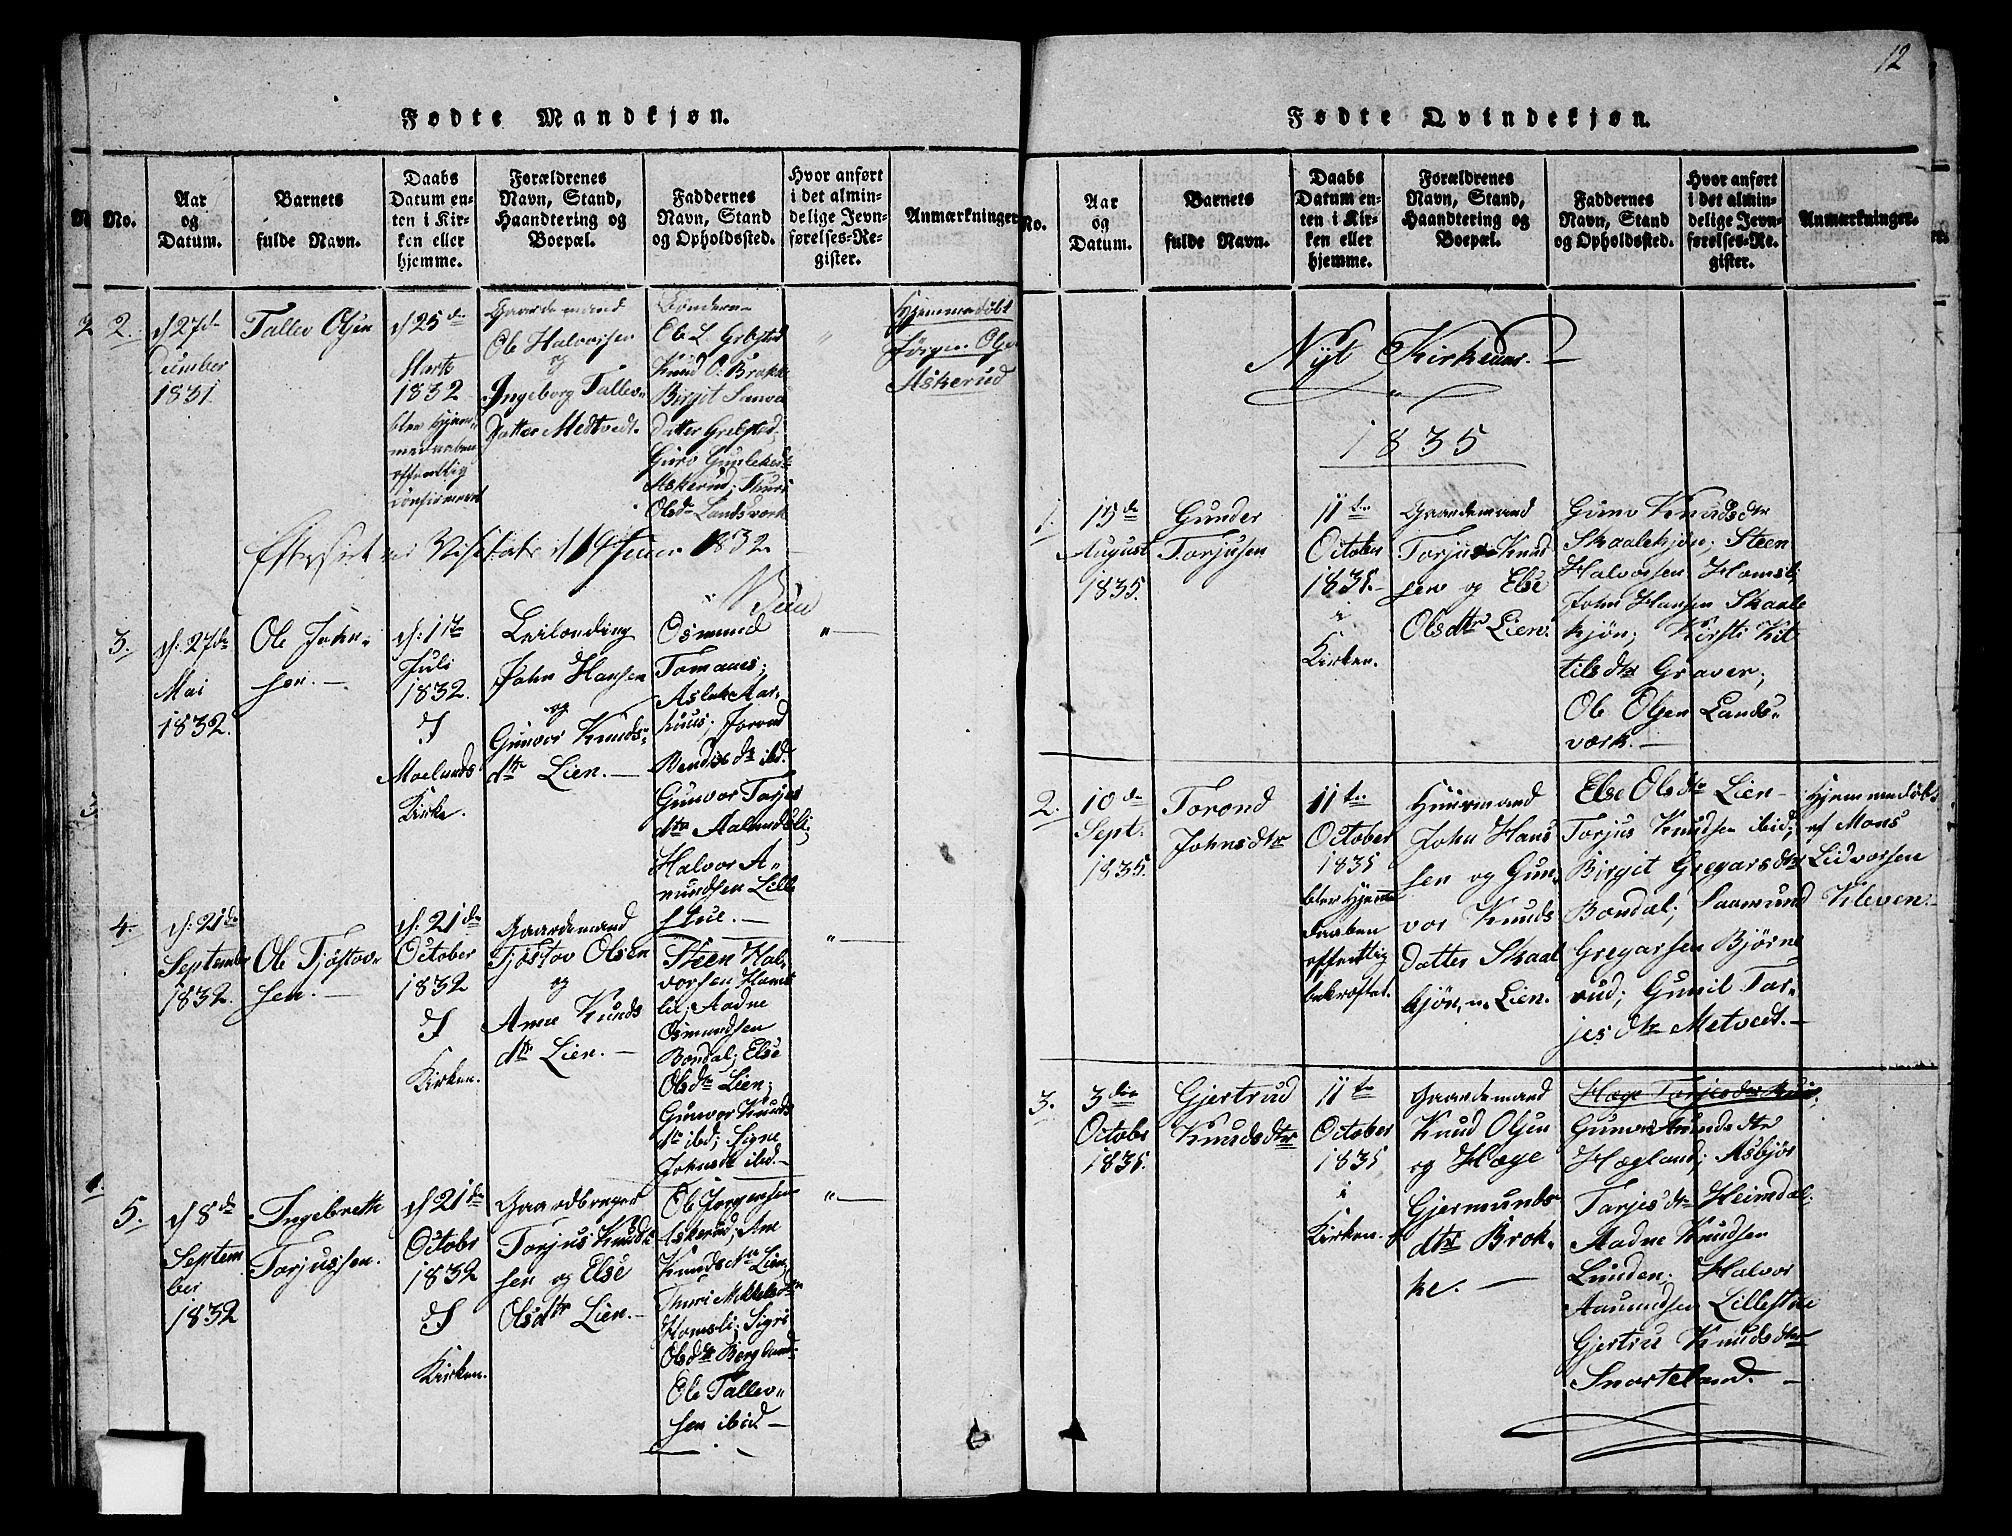 12
Fødte Mandkjøn.
No.
Aar
og
Datum.
Barnets
fulde Navn.
Daabs
Datum en-
ten i Kir-
ken eller
hjemme.
Forældrenes
Navn, Stand,
Haandtering og
Boepæl.
Faddernes
Navn, Stand
og Opholdssted.
Hvor anført
i det almin-
delige Jevn-
førelses-Re-
gister.
Anmærkninger
2.
d 27de
December
1831.
Tallev Olsen
d 25de
Marts
1832
blev Hjem-
medaaben
offentlig
confirmeret
Gaardemand
Ole Halvorsen
og
Ingeborg Tallevs-
Datter Medtvedt.
Ole L Grebsted
Knud O. Brokke
Birgit
Datter Grebsted,
Guro Gunleksd
Askerud; Thuri
Olsdr Landsverk
"
Hjemmedøbt
Jørgen Olsen
Askerud
Efterseet ved Visitats d 19 Juni 1832.
3.
d. 27de
Mai
1832.
Ole John-
sen.—
d. 1ste
Juli
1832.
I
Moelands
Kirke.
Leilænding
John Hansen
og
Gunvor Knuds-
dtr Lien.—
Osmund
Tomaaes;
Aslak Aar-
huus; Jorond
Bendixdtr ibd.
Gunvor Torjes
dtr Aalmodsli;
Halvor A-
mundsen Lille
stue.—
"—
4.
d. 21de
September
1832.
Ole Tjøstov-
sen.—
d. 21de
October
1832
I
Kirken.
Gaardemand
Tjøstov Olsen
og
Anne Knuds
dtr Lien.—
Steen Hal-
vorsen Homs
li; Aadne
Osmundsen
Bondal; Else
Olsdtr Lien;
Gunvor Knuds
dtr ibd; Signe
Johnsdtr ibid.—
"—
5.
d 8de
Septem
ber
1832
Ingebreth
Torjussen.
d 21de
Octobr
1832
I
Kirken.
Gaardbruger
Torjus Knud-
sen og Else
Olsdtr Lien.—
Ole Jørgensen
Askerud; Ane
Knudsdtr Lien;
Thuri Mikkelsdtr
Homsli; Sigri
Olsdtr Bergland-
Ole Tallev-
sen ibid—
"—
Fødte Qvindekjøn.
No.
Aar
og
Datum.
Barnets
fulde Navn.
Daabs
Datum en-
ten i Kir-
ken eller
hjemme.
Forældrenes
Navn, Stand,
Haandtering og
Boepæl.
Faddernes
Navn, Stand
og Opholdssted.
Hvor anført
i det almin-
delige Jevn-
førelses-Re-
gister.
Anmærkninger.
Nyt Kirkeaar.
1835
1.
15de
August
1835.
Gunder
Torjusen
11te
October
1835.—
i
Kirken.
Gaardemand
Torjus Knud
sen og Else
Olsdtr Lien.
Guno Knudsdtr
Skaalekjøn; Steen
Halvorsen Homsli
John Hansen Skaale
kjøn; Kirsti Kit
tilsdtr Graver;
Ole Olsen Lands-
værk.—
2.
10de
Sept.
1835.
Torond
Johnsdtr
11te
October
1835
blev Hjemme
daaben
offentlig
bekræftet.
Huusmand
John Hans
sen og Gun-
vor Knuds
datter Skaal
kjøn, u. Lien.
Else Olsdtr Lien—
Torjus Knudsen ibid;
Birgit Gregarsdtr
Bondal; Saamund
Gregarsen Bjørne
rud; Gunil Tor-
jesdtr Metvedt.—
Hjemmedøbt
af Mons
Lidvorsen
Kleven.—
3.
3die
Octobr
1835.
Gjertrud
Knudsdtr
11te
October
1835
i
Kirken.
Gaardemand
Knud Olsen
og Hæge
Gjermunds
dtr Brok-
ke.—
Hæge Torjesdtr
Gunvor Amundsdtr
Hægland; Asbjør
Tarjesdtr Heimdal.
Aadne Knudsen
Lunden; Halvor
Aamundsen Lillestue
Gjertru Knudsdtr
Snorteland.—